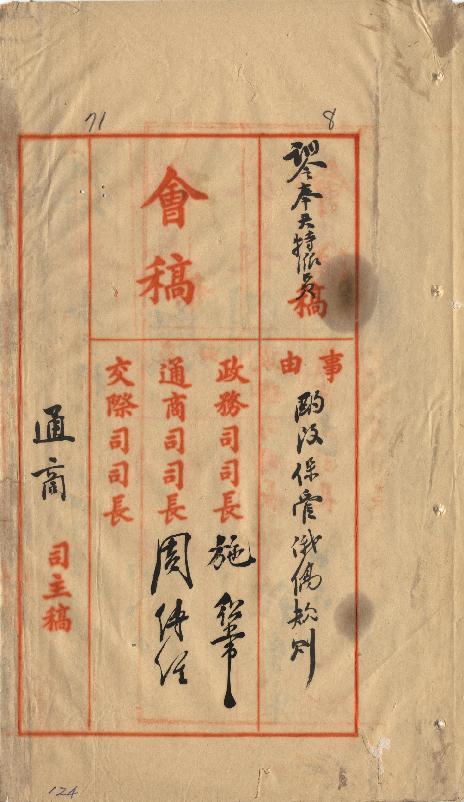 71
8
訓令奉天特派員
稿
事由
酌改保管俄僑款則
會稿
政務司司長 施紹常
通商司司長 周傳經
交際司司長
通商 司主稿
124